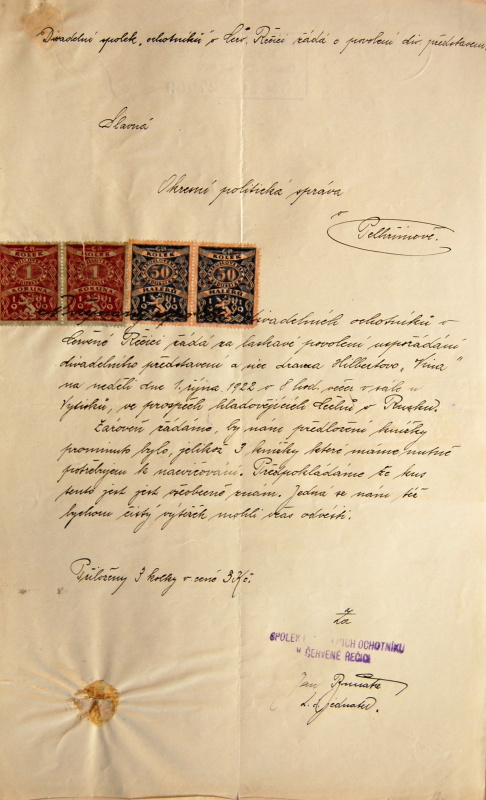 Divadelní spolek „ochotníků“ v Červ. Řečici žádá o povolení div. představení.
Slavná
Okresní politická správa
v Pelhřimově.
ČR ČR ČR ČR
KOLEK KOLEK KOLEK KOLEK
1 1 50 50
KORUNA KORUNA HALÉŘŮ HALÉŘŮ
divadelních ochotníků v
Červené Řečici žádá za laskavé povolení uspořádání
divadelního představení a sice drama Hilbertovo „Vina“
na neděli dne 1. října 1922 v 8 hod. večer v sále u
ve prospěch hladovějících Čechů v Rusku.
Zároveň žádáme, by nam předložení knížky
prominuto bylo, jelikož 3 knížky které mame nutně
potřebujem k nacvičování. Předpokládáme že kus
tento jest jest všeobecně znam. Jedna se nam též
bychom čistý výtěžek mohli včas odvésti.
Přiloženy 3 kolky v ceně 3 Kč.
Za
SPOLEK OCHOTNÍKU
V ČERVENÉ ŘEČICI
Jan
t. č. jednatel.